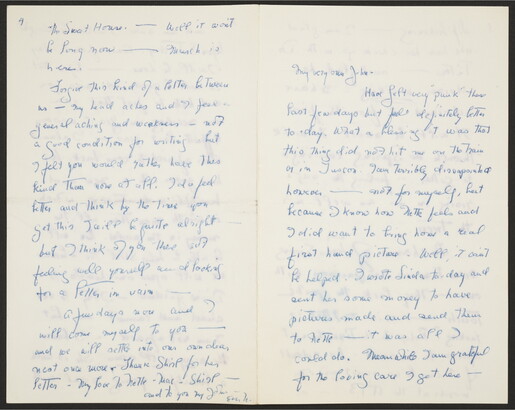 4
House. — Well, it wont
be long now — March is
here.
Forgive this kind of a letter between
us — my head aches and I feel
general aching and weakness — not
a good condition for writing but
I felt you would rather have this
kind than none at all. I do feel
better and think by the time you
get this I will be quite alright —
but I think of you there not
feeling well yourself and looking
for a letter in vain —
a few days now and I
will come myself to you —
and we will settle into our own dear
nest once more. Thank Shirl for her
letter - My love to Nette - Mae - Shirl —
and to you my
My very own
Have felt very punk these
last few days but feel definitely better
to-day. What a blessing it was that
this thing did not hit me on the train
or in Tucson. I am terribly disappointed
however — not for myself, but
because I know how Nette feels and
I did want to bring her a real
first hand picture. Well, it aint
be helped. I wrote Linda to-day and
sent her some money to have
pictures made and send them
to Nette — it was all I
could do. Meanwhile I am grateful
for the loving care I get here —